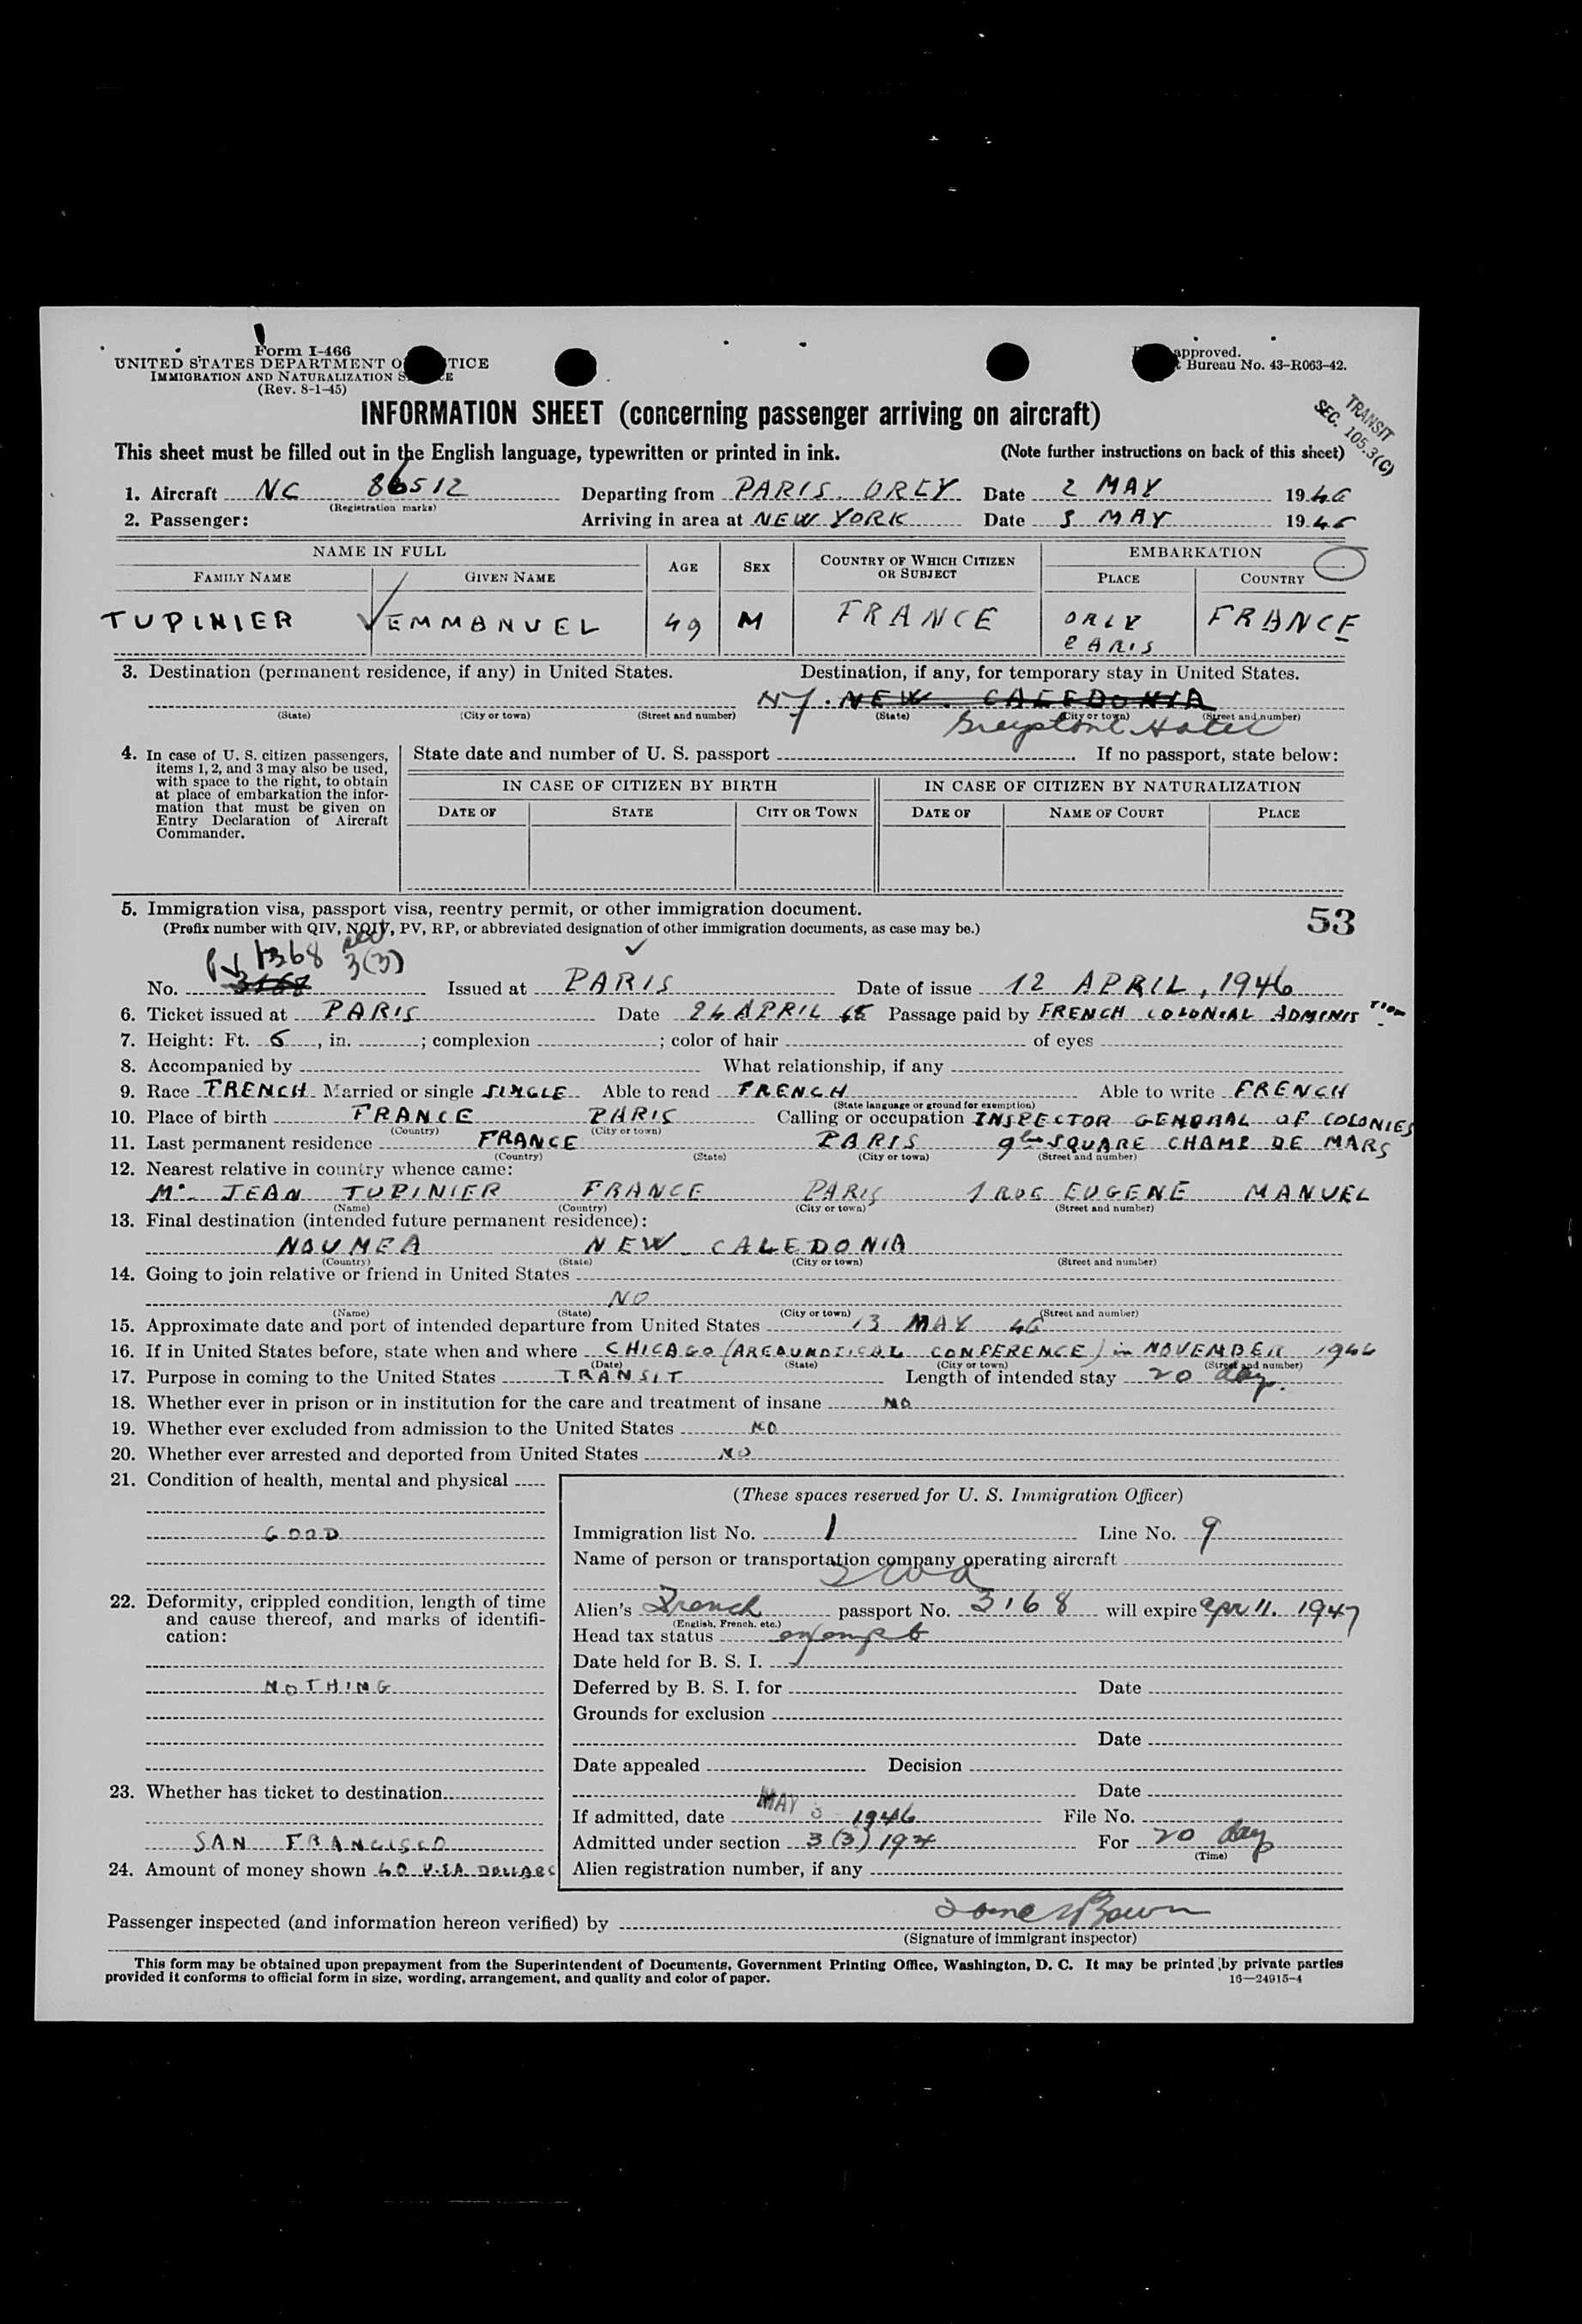 Form I-466
UNITED STATES DEPARTMENT O TICE
IMMIGRATION AND NATURALIZATION S E
(Rev. 8-1-45)
approved.
Bureau No. 43-R063-42.
INFORMATION SHEET (concerning passenger arriving on aircraft)
TRANSIT
SEC. 105.3(C)
This sheet must be filled out in the English language, typewritten or printed in ink. (Note further instructions on back of this sheet)
1. Aircraft NC 86512 Departing from PARIS. ORLY Date 2 MAY 1946
(Registration marks)
2. Passenger: Arriving in area at NEW YORK Date 3 MAY 1946
NAME IN FULL AGE SEX COUNTRY OF WHICH CITIZEN OR SUBJECT EMBARKATION
FAMILY NAME GIVEN NAME PLACE COUNTRY
TUPINIER EMMANUEL 49 M FRANCE ORLY PARIS FRANCE
3. Destination (permanent residence, if any) in United States. Destination, if any, for temporary stay in United States.
NY. NEW CALEDONIA
(State) (City or town) (Street and number) (State) (City or town) (Street and number)
Greystone Hotel
4. In case of U. S. citizen passengers, items 1, 2, and 3 may also be used, with space to the right, to obtain at place of embarkation the information that must be given on Entry Declaration of Aircraft Commander.
State date and number of U. S. passport . If no passport, state below:
IN CASE OF CITIZEN BY BIRTH IN CASE OF CITIZEN BY NATURALIZATION
DATE OF STATE CITY OR TOWN DATE OF NAME OF COURT PLACE
5. Immigration visa, passport visa, reentry permit, or other immigration document. 53
(Prefix number with QIV, NQIV, PV, RP, or abbreviated designation of other immigration documents, as case may be.)
PV 1368 3(3)
No. 3168 Issued at PARIS Date of issue 12 APRIL, 1946
6. Ticket issued at PARIS Date 24 APRIL 46 Passage paid by FRENCH COLONIAL ADMINISTION
7. Height: Ft. 6, in. ; complexion ; color of hair of eyes
8. Accompanied by What relationship, if any
9. Race FRENCH Married or single SINGLE Able to read FRENCH Able to write FRENCH
(State language or ground for exemption)
10. Place of birth FRANCE PARIS Calling or occupation INSPECTOR GENERAL OF COLONIES
(Country) (City or town)
11. Last permanent residence FRANCE PARIS 9 bis SQUARE CHAMP DE MARS
(Country) (State) (City or town) (Street and number)
12. Nearest relative in country whence came:
Mr. JEAN TUPINIER FRANCE PARIS 1 RUE EUGENE MANUEL
(Name) (Country) (City or town) (Street and number)
13. Final destination (intended future permanent residence):
NOUMEA NEW CALEDONIA
(Country) (State) (City or town) (Street and number)
14. Going to join relative or friend in United States
NO
(Name) (State) (City or town) (Street and number)
15. Approximate date and port of intended departure from United States 13 MAY 46
16. If in United States before, state when and where CHICAGO (AREAUNOTICAL CONFERENCE) in NOVEMBER 1944
(Date) (State) (City or town) (Street and number)
17. Purpose in coming to the United States TRANSIT Length of intended stay 20 day.
18. Whether ever in prison or in institution for the care and treatment of insane NO
19. Whether ever excluded from admission to the United States NO
20. Whether ever arrested and deported from United States NO
21. Condition of health, mental and physical
GOOD
22. Deformity, crippled condition, length of time and cause thereof, and marks of identification:
NOTHING
23. Whether has ticket to destination
SAN FRANCISCO
24. Amount of money shown 40 U.S.A. DOLLARS
(These spaces reserved for U. S. Immigration Officer)
Immigration list No. 1 Line No. 9
Name of person or transportation company operating aircraft
TWA
Alien's French passport No. 3168 will expire Apr 11. 1947
(English, French, etc.)
Head tax status exempt
Date held for B. S. I.
Deferred by B. S. I. for Date
Grounds for exclusion
Date
Date appealed Decision
Date
If admitted, date MAY 3 1946 File No.
Admitted under section 3(3) 1924 For 20 day
(Time)
Alien registration number, if any
Passenger inspected (and information hereon verified) by
(Signature of immigrant inspector)
This form may be obtained upon prepayment from the Superintendent of Documents, Government Printing Office, Washington, D. C. It may be printed by private parties
provided it conforms to official form in size, wording, arrangement, and quality and color of paper. 16—24915-4